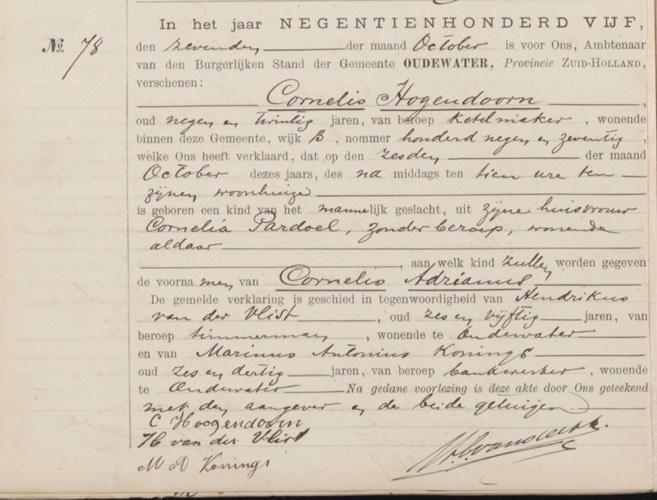 In het jaar NEGENTIENHONDERD VIJF,
No. 78
den zevenden der maand October is voor Ons, Ambtenaar
van den Burgerlijken Stand der Gemeente OUDEWATER, Provincie ZUID-HOLLAND,
verschenen:
Cornelis Hogendoorn,
oud negen en twintig jaren, van beroep ketelmaker, wonende
binnen deze Gemeente, wijk B, nommer honderd negen en zeventig,
welke Ons heeft verklaard, dat op den zesden der maand
October dezes jaars, des na middags ten tien ure ten
zijnen woonhuize
is geboren een kind van het mannelijk geslacht, uit zijne huisvrouw
Cornelia Pardoel, zonder beroep, wonende
aldaar
, aan welk kind zullen worden gegeven
de voornamen van Cornelis Adrianus.
De gemelde verklaring is geschied in tegenwoordigheid van Hendrikus
van der Vlist, oud zes en vijftig jaren, van
beroep timmerman, wonende te Oudewater
en van Marinus Antonius Konings
oud zes en dertig jaren, van beroep bankwerker, wonende
te Oudewater Na gedane voorlezing is deze akte door Ons geteekend
met den aangever en de beide getuigen.
C Hoogendoorn
H van der Vlist
M A Konings